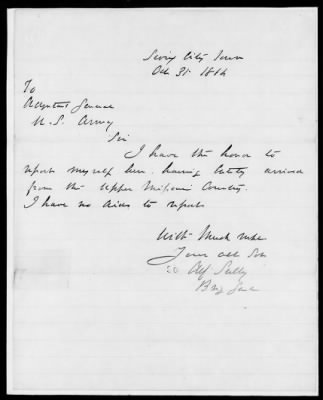 Sioux City Iowa
Oct 31 1864
To
Adjutant General
U. S. Army
Sir
I have the honor to
report myself here. having lately arrived
from the Upper Missouri Country.
I have no Aides to report
With Much
Your obt Svt
Alf Sully
Brig Genl